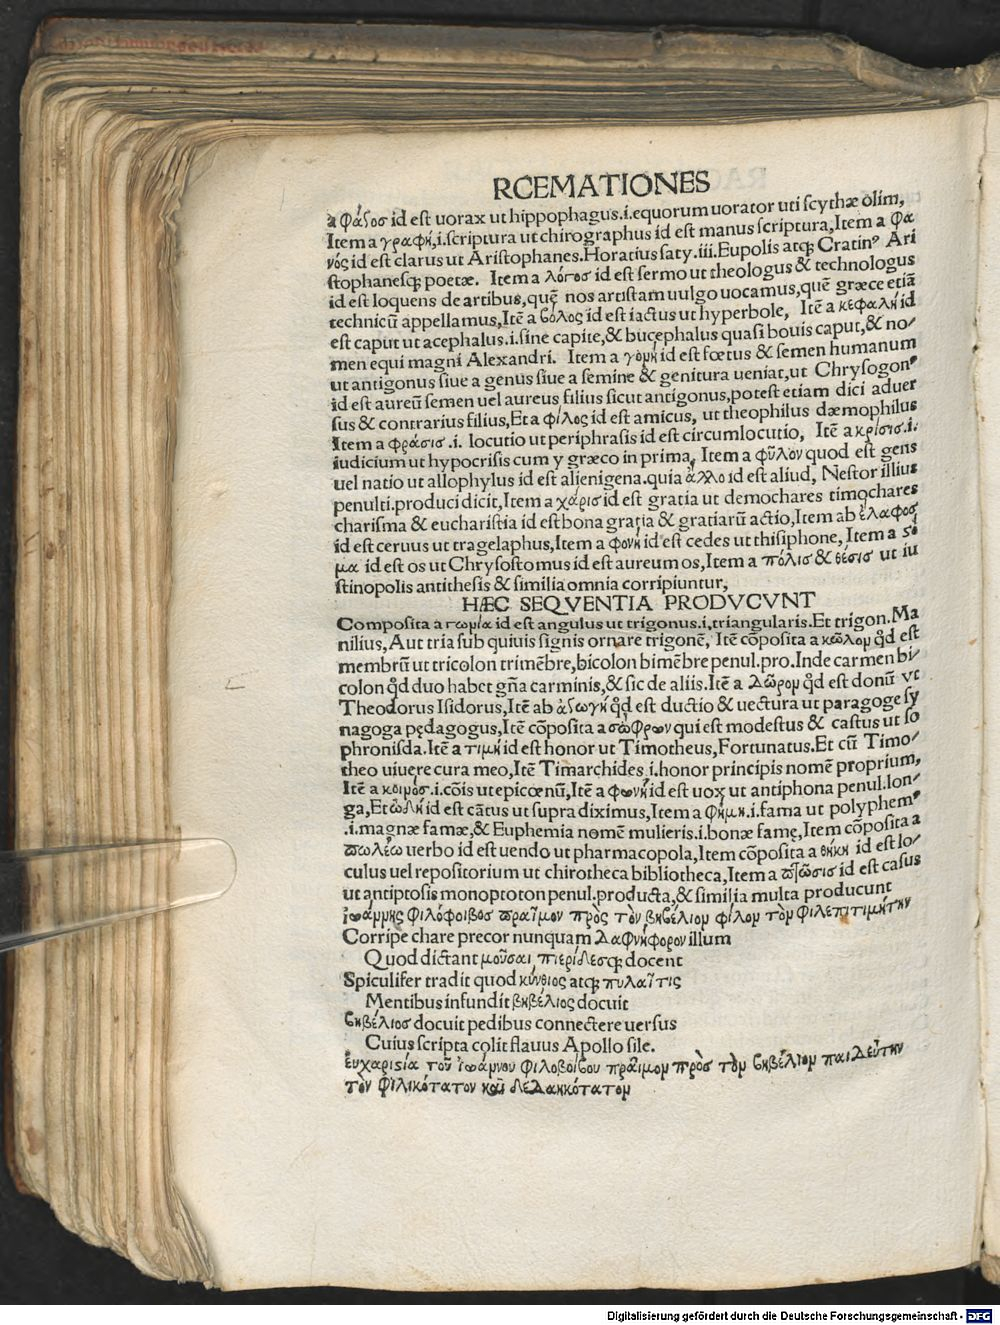 RCEMATIONES
a φάγος id est uorax ut hippophagus.i.equorum uorator uti scythæ olim,
Item a γραφή,i.scriptura ut chirographus id est manus scriptura,Item a φα
νός id est clarus ut Aristophanes.Horatius saty.iii.Eupolis atq; Cratinꝰ Ari
stophanesq; poetæ. Item a λόγος id est sermo ut theologus & technologus
id est loquens de artibus,quẽ nos artistam uulgo uocamus,quẽ græce etiã
technicũ appellamus,Itẽ a βόλος id est iactus ut hyperbole, Itẽ a κεφαλή id
est caput ut acephalus.i.sine capite,& bucephalus quasi bouis caput,& no/
men equi magni Alexandri. Item a γομή id est fœtus & semen humanum
ut antigonus siue a genus siue a semine & genitura ueniat,ut Chrysogonꝰ
id est aureũ semen uel aureus filius sicut antigonus,potest etiam dici aduer
sus & contrarius filius,Et a φίλος id est amicus, ut theophilus dæmophilus
Item a φράσις .i. locutio ut periphrasis id est circumlocutio, Itẽ a κρίσις.i.
iudicium ut hypocrisis cum y græco in prima, Item a φῦλον quod est gens
uel natio ut allophylus id est alienigena.quia ἄλλο id est aliud, Nestor illius
penulti.produci dicit,Item a χάρις id est gratia ut demochares timochares
charisma & eucharistia id est bona gratia & gratiarũ actio,Item ab ἔλαφος
id est ceruus ut tragelaphus,Item a φονή id est cedes ut thisiphone, Item a ςό
μα id est os ut Chrysostomus id est aureum os,Item a πόλις & θέσις ut iu
stinopolis antithesis & similia omnia corripiuntur,
HÆC SEQVENTIA PRODVCVNT
Composita a γωμία id est angulus ut trigonus.i,triangularis.Et trigon.Ma
nilius,Aut tria sub quiuis signis ornare trigonẽ, Itẽ cõposita a κῶλομ qd̓ est
membrũ ut tricolon trimẽbre,bicolon bimẽbre penul.pro.Inde carmen bi/
colon qd̓ duo habet gña carminis,& sic de aliis.Itẽ a Δῶρομ qd̓ est donũ vt
Theodorus Isidorus,Itẽ ab ἀγωγή qd̓ est ductio & uectura ut paragoge sy
nagoga pędagogus,Itẽ cõposita a σώφρων qui est modestus & castus ut so
phronisda.Itẽ a τιμή id est honor ut Timotheus,Fortunatus.Et cũ Timo/
theo uiuere cura meo,Itẽ Timarchides i.honor principis nomẽ proprium,
Itẽ a κοιμός.i.cõis ut epicœnũ,Itẽ a φωνή id est uox ut antiphona penul.lon/
ga,Et ὠδή id est cãtus ut supra diximus,Item a φήμη.i.fama ut polyphemꝰ
.i.magnæ famæ,& Euphemia nomẽ mulieris.i.bonæ famę,Item cõposita a
πωλέω uerbo id est uendo ut pharmacopola,Item cõposita a θήκη id est lo/
culus uel repositorium ut chirotheca bibliotheca,Item a πτῶσις id est casus
ut antiptosis monoptoton penul.producta,& similia multa producunt
ἰωάμμης φιλόφοιβος πραῖμον πρὸς τὸν βηβέλιομ φίλομ τὸμ φιλεπιτιμήτην
Corripe chare precor nunquam Δαφνήφορον illum
Quod dictant μοῦσαι πιερίδεσq; docent
Spiculifer tradit quod κύνθιος atq; πυλαῖτις
Mentibus infundit βηβέλιος docuit
βηβέλιος docuit pedibus connectere uersus
Cuius scripta colit flauus Apollo sile.
ἐυχαριςία τοῦ ἰωάμνου φιλοβοίβου πραῖμομ πρὸς τὸμ βηβέλιομ παιδεύτην
τὸν φιλικότατον καὶ δεδακκότατομ